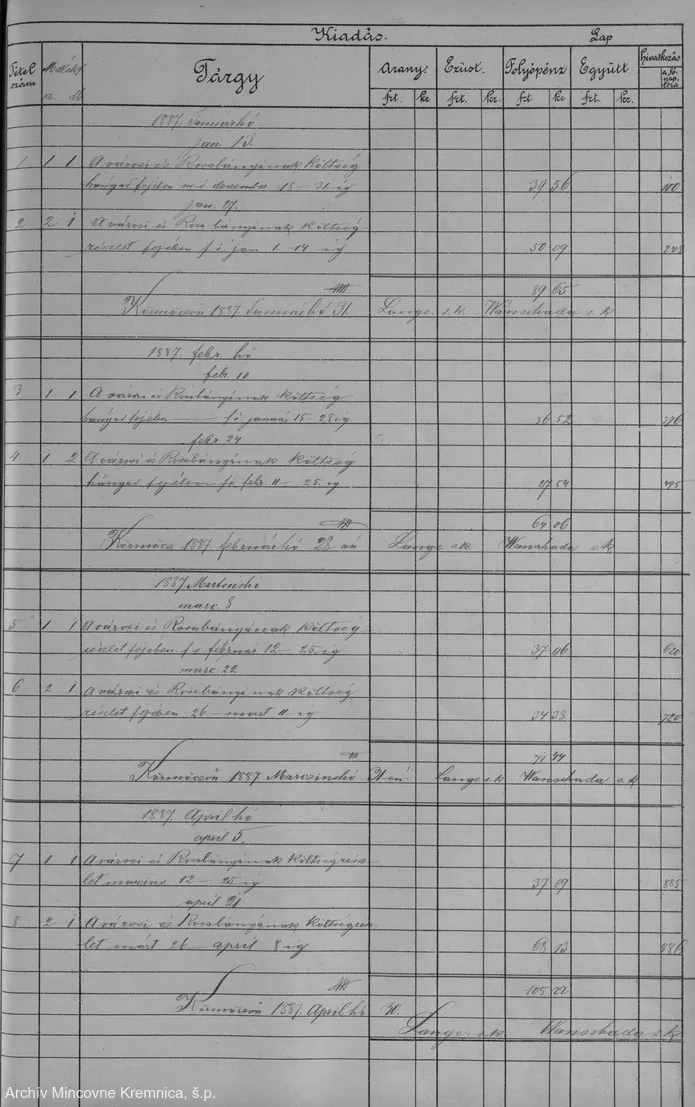 Kiadás. Lap
Tétel szám Melléklet sz. db Tárgy Arany. Ezüst. Folyópénz Együtt Hivatkozás a fő naplóra
frt. kr. frt. kr. frt kr frt. kr.
1887. Januárhó
jan. 13.
1 1 1 A városi és Rosabányának költség
hányad fejében m é december 18 - 31. ig 39 56 100
jan. 27.
2 2 1 A városi és Rosabányának költség
részlet fejében f. é. jan 1. 14 ig 50 09 248
89 65
Körmöczön 1887 Januárhó 31. Lange s. k. Wanschada s. k
1887 febr. hó
febr. 10
3 1 1 A városi és Rosabányának költség
hányad fejében f é január 15 - 28 ig 36 52 396
febr. 24
4 1 2 A városi és Rosabányának költség
hányad fejében f é. febr. 11 - 25. ig 27 54 495
64 06
Körmöcz 1887 februárhó 28 án Lange s. k. Wanschada s. k
1887 Martiushó
marc. 8
5 1 1 A városi és Rosabányának költség
részlet fejében f. é február 12 - 25 ig 37 06 620
marc. 22
6 2 1 A városi és Rosabányának költség
részlet fejében 26 - mart 11 ig 34 38 720
71 44
Körmöczön 1887 Marcziushó 31 én Lange s. k. Wanschada s. k
1887 April hó
april 5.
7 1 1 A városi és Rosabányának költségrész
let marcius 12 - 25 ig 37 09 825
april 21
8 2 1 A városi és Rosabányának költségrész
let márt 26 - april 8 ig 68 13 886
105 22
Körmöczön 1887. April hó 30.
Lange s. k. Wanschada s. k
Archív Mincovne Kremnica, š.p.